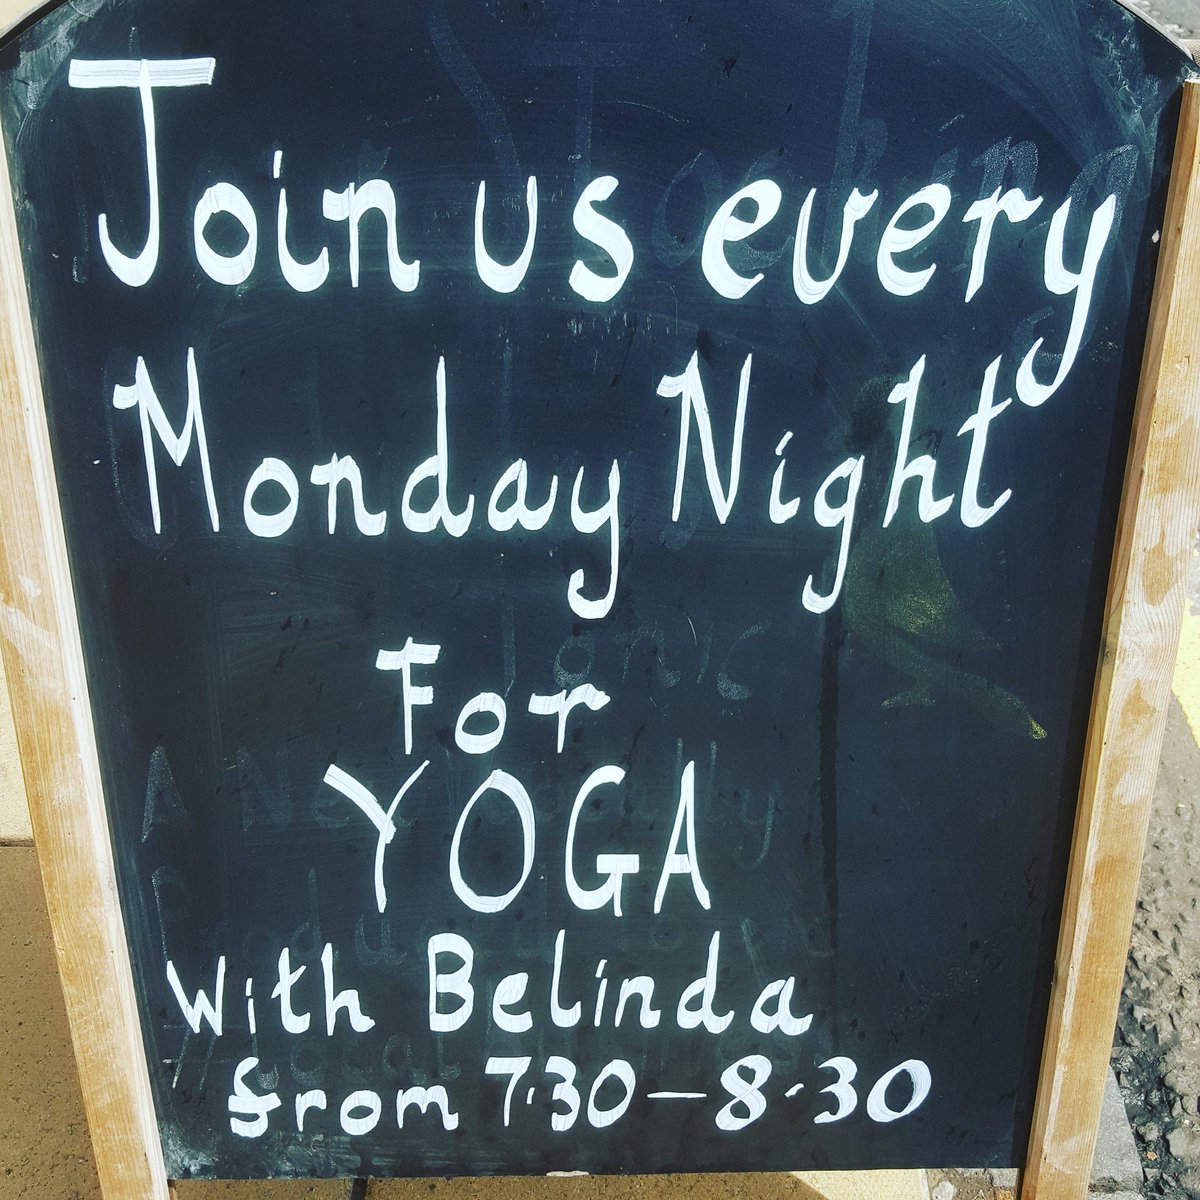 Join us every
Monday Night
For
YOGA
With Belinda
from 7.30 - 8.30